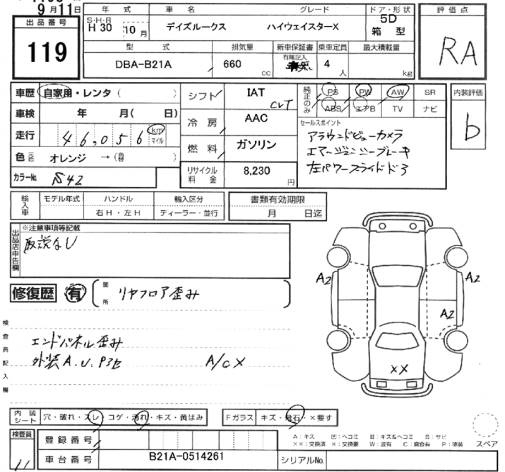 9月11日
出品番号
119
年式
車名
グレード
ドア・形状
S・H・R
H 30
10月
デイズルークス
ハイウェイスターX
5D
箱型
型式
排気量
新車保証書
乗車定員
最大積載量
DBA-B21A
660
cc
4
人
kg
評価点
RA
車歴
自家用・レンタ
車検
年 月 ( 日)
走行
46,056
km
マイル
色
オレンジ → (
カラーNo.
シフト
IAT
CVT
冷房
AAC
燃料
ガソリン
リサイクル料金
8,230
純正のみ
PS
PW
AW
SR
ABS
エアB
TV
ナビ
セールスポイント
アラウンドビューカメラ
エマージェンシーブレーキ
左パワースライドドア
内装評価
b
輸入車
モデル年式
ハンドル
輸入区分
右H・左H
ディーラー・並行
書類有効期限
月 日迄
出品店申告欄
※注意事項等記載
取説なし
修復歴
有
箇所
リヤフロア歪み
検査員記入欄
エンドパネル歪み
外装A.U.P3E
A/CX
A2
A2
XX
内装シート
穴・破れ・スレ・コゲ・汚れ・キズ・黄ばみ
Fガラス
キズ・飛石・×要す
スペア
検査員
登録番号
車台番号
B21A-0514261
シリアルNo.